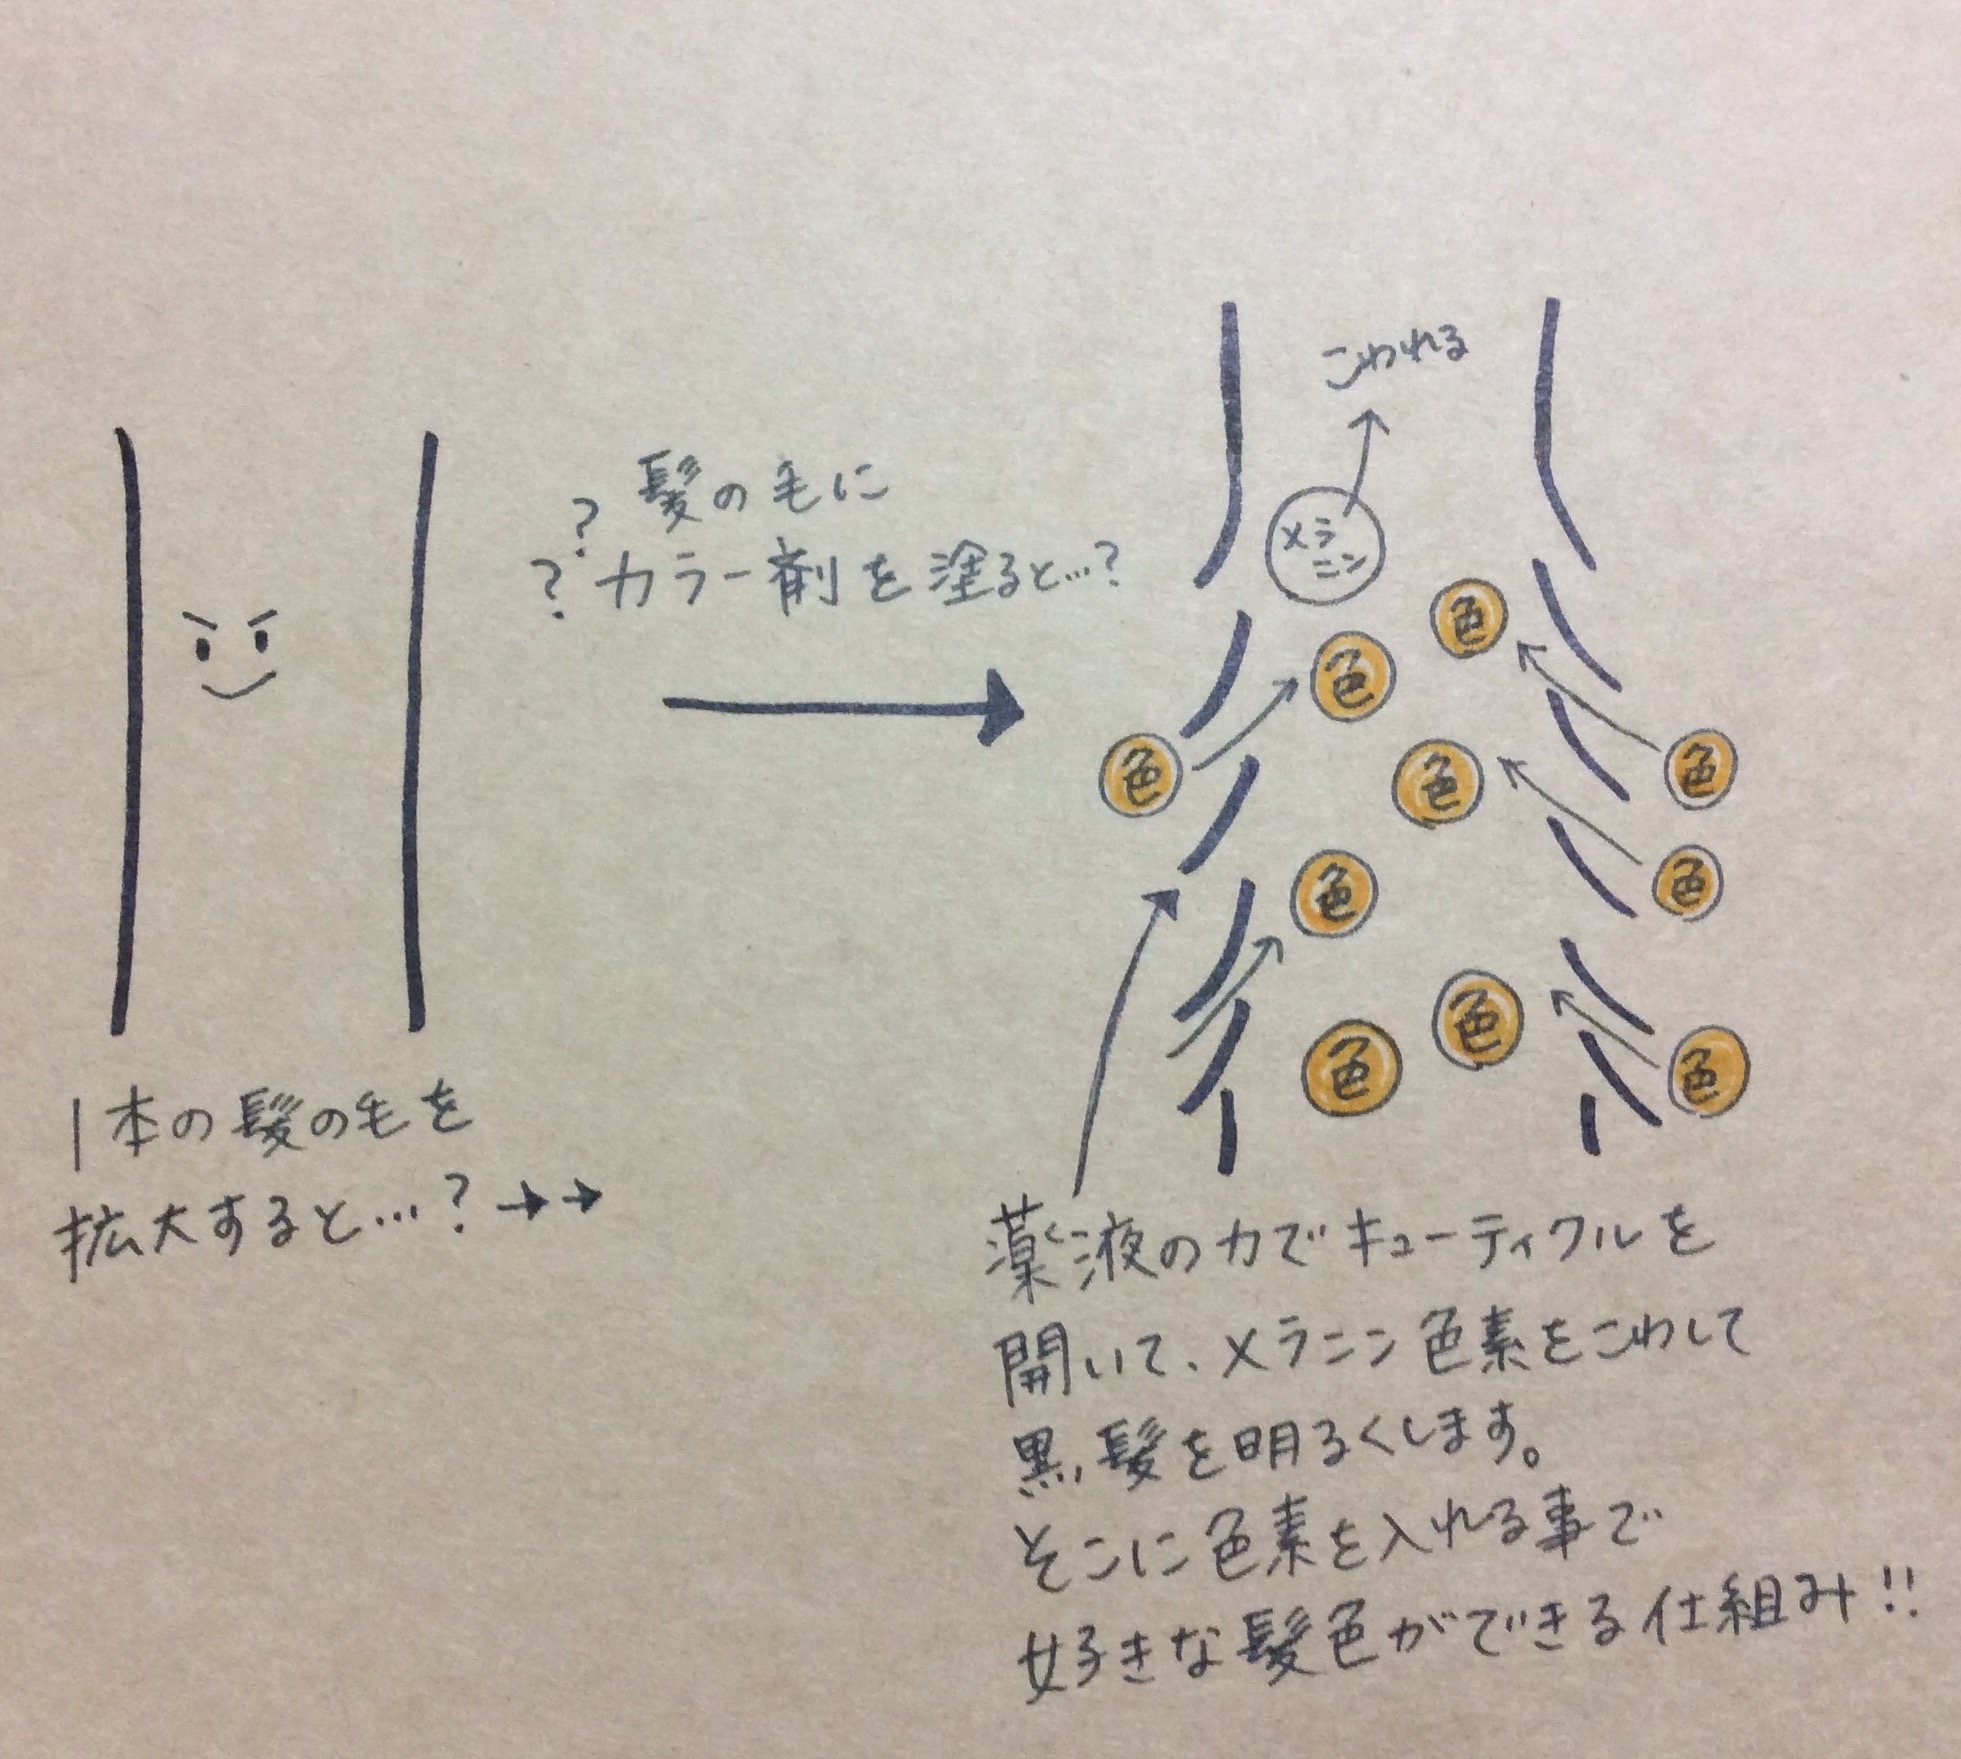 1本の髪の毛を
拡大すると…?→→
? 髪の毛に
? カラー剤を塗ると…?
こわれる
メラ
ニン
色
色
色
色
色
色
色
色
色
色
薬液の力でキューティクルを
開いて、メラニン色素をこわして
黒髪を明るくします。
そこに色素を入れる事で
好きな髪色ができる仕組み!!